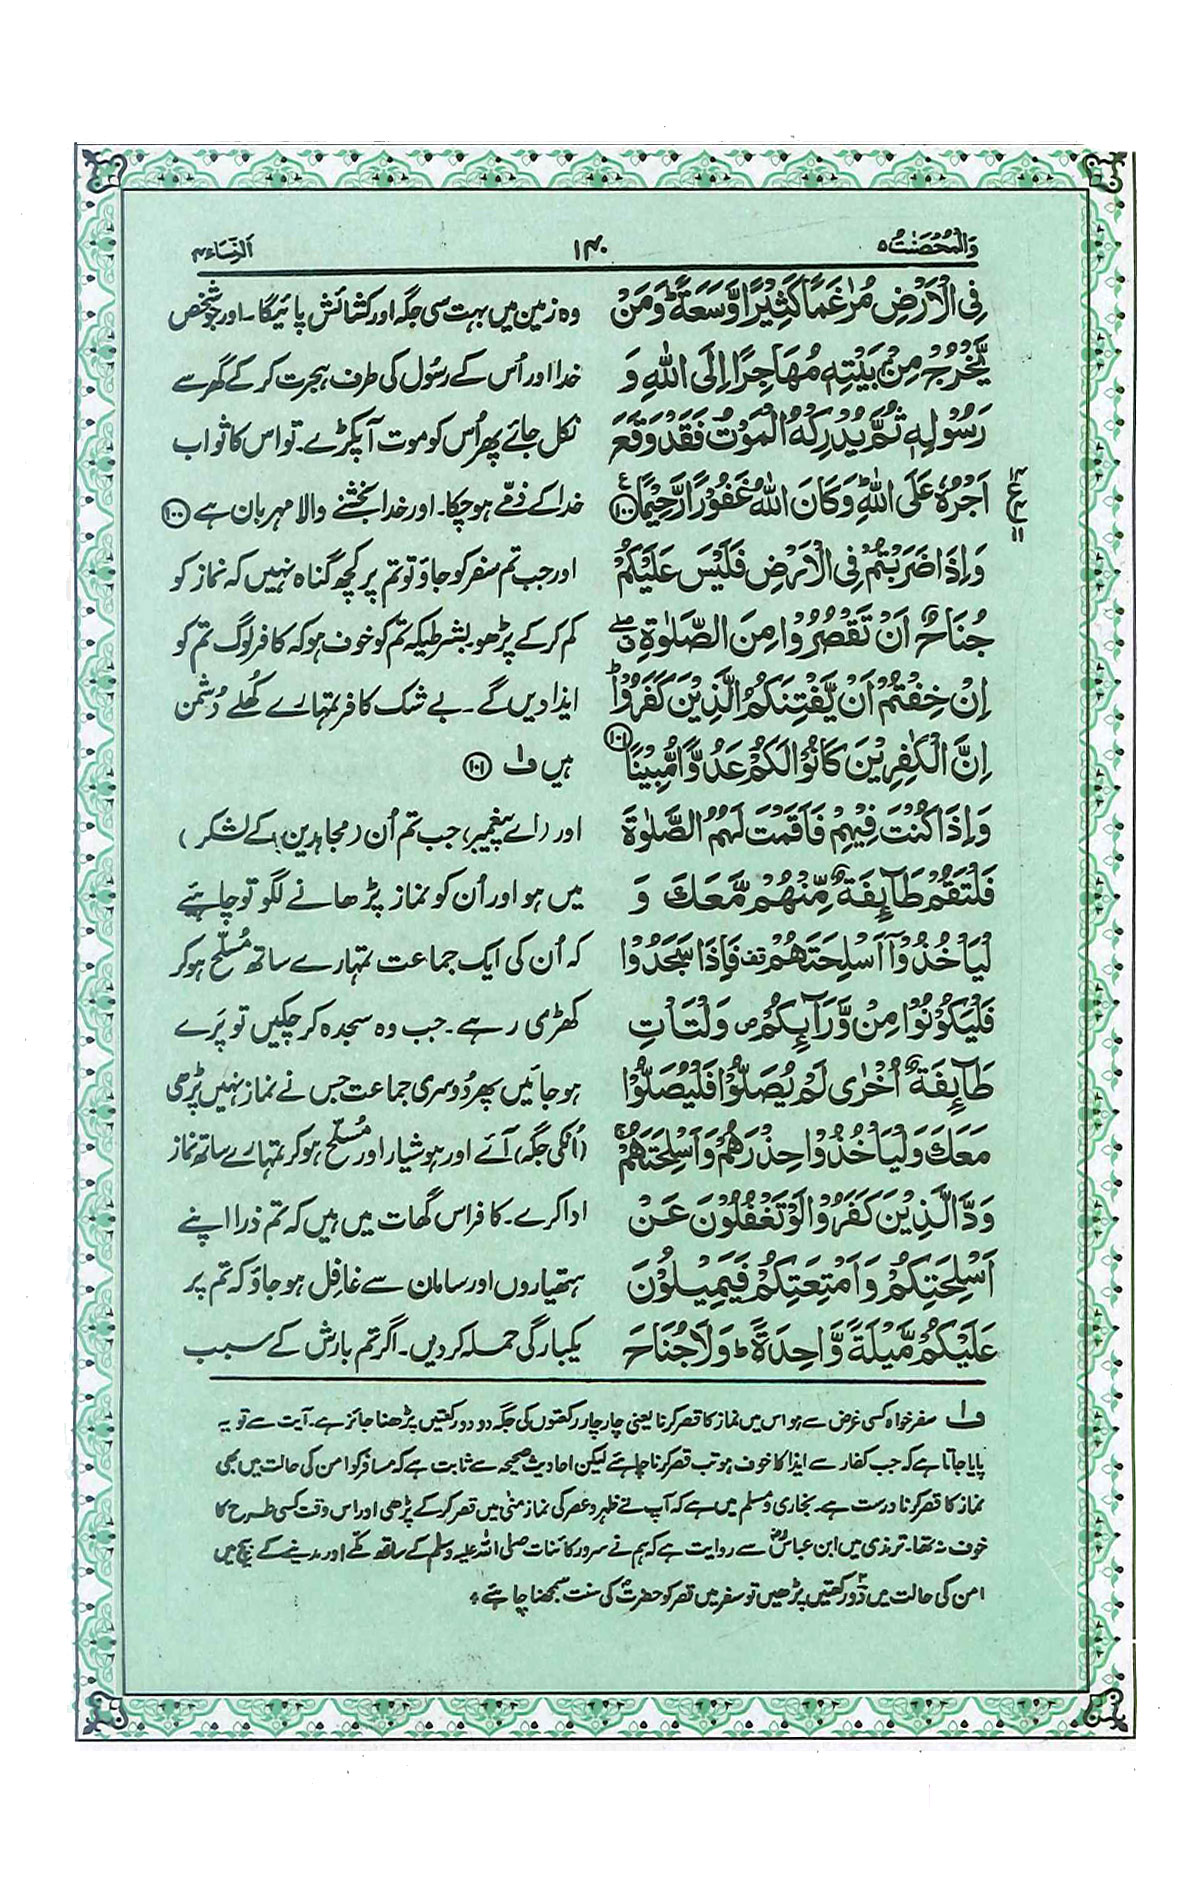 وَالْمُحْصَنٰتُ ۵
۱۴۰
اَلنِّسَاء ۴
فِی الْاَرْضِ مُرٰغَمًا كَثِیْرًا وَّسَعَةً ؕ وَمَنْ
یَّخْرُجْ مِنْۢ بَیْتِهٖ مُهَاجِرًا اِلَی اللّٰهِ وَ
رَسُوْلِهٖ ثُمَّ یُدْرِكْهُ الْمَوْتُ فَقَدْ وَقَعَ
اَجْرُهٗ عَلَی اللّٰهِ ؕ وَكَانَ اللّٰهُ غَفُوْرًا رَّحِیْمًا ۱۰۰
وَاِذَا ضَرَبْتُمْ فِی الْاَرْضِ فَلَیْسَ عَلَیْكُمْ
جُنَاحٌ اَنْ تَقْصُرُوْا مِنَ الصَّلٰوةِ ۖق
اِنْ خِفْتُمْ اَنْ یَّفْتِنَكُمُ الَّذِیْنَ كَفَرُوْا ؕ
اِنَّ الْكٰفِرِیْنَ كَانُوْا لَكُمْ عَدُوًّا مُّبِیْنًا ۱۰۱
وَاِذَا كُنْتَ فِیْهِمْ فَاَقَمْتَ لَهُمُ الصَّلٰوةَ
فَلْتَقُمْ طَآىِٕفَةٌ مِّنْهُمْ مَّعَكَ وَ
لْیَاْخُذُوْۤا اَسْلِحَتَهُمْ قف فَاِذَا سَجَدُوْا
فَلْیَكُوْنُوْا مِنْ وَّرَآىِٕكُمْ ص وَلْتَاْتِ
طَآىِٕفَةٌ اُخْرٰی لَمْ یُصَلُّوْا فَلْیُصَلُّوْا
مَعَكَ وَلْیَاْخُذُوْا حِذْرَهُمْ وَاَسْلِحَتَهُمْ ۚ
وَدَّ الَّذِیْنَ كَفَرُوْا لَوْ تَغْفُلُوْنَ عَنْ
اَسْلِحَتِكُمْ وَاَمْتِعَتِكُمْ فَیَمِیْلُوْنَ
عَلَیْكُمْ مَّیْلَةً وَّاحِدَةً ؕ وَلَا جُنَاحَ
وہ زمین میں بہت سی جگہ اور کشائش پائیگا۔ اور جو شخص
خدا اور اُس کے رسُول کی طرف ہجرت کر کے گھر سے
نکل جائے پھر اُس کو موت آ پکڑے۔ تو اس کا ثواب
خدا کے ذمّے ہو چکا۔ اور خدا بخشنے والا مہربان ہے ۱۰۰
اور جب تم سفر کو جاؤ تو تم پر کچھ گناہ نہیں کہ نماز کو
کم کر کے پڑھو بشرطیکہ تم کو خوف ہو کہ کافر لوگ تم کو
ایذا دیں گے۔ بے شک کافر تمہارے کُھلے دُشمن
ہیں ف۱ ۱۰۱
اور (اے پیغمبر) جب تم اُن (مجاہدین کے لشکر)
میں ہو اور اُن کو نماز پڑھانے لگو تو چاہئے
کہ اُن کی ایک جماعت تمہارے ساتھ مُسلّح ہو کر
کھڑی رہے۔ جب وہ سجدہ کر چکیں تو پَرے
ہو جائیں پھر دُوسری جماعت جس نے نماز نہیں پڑھی
(اُنکی جگہ) آئے اور ہوشیار اور مُسلّح ہو کر تمہارے ساتھ نماز
ادا کرے۔ کافر اس گھات میں ہیں کہ تم ذرا اپنے
ہتھیاروں اور سامان سے غافل ہو جاؤ کہ تم پر
یکبارگی حملہ کر دیں۔ اگر تم بارش کے سبب
ف۱ سفر خواہ کسی غرض سے ہو اس میں نماز کا قصر کرنا یعنی چار چار رکعتوں کی جگہ دو دو رکعتیں پڑھنا جائز ہے۔ آیت سے تو یہ
پایا جاتا ہے کہ جب کفار سے ایذا کا خوف ہو تب قصر کرنا چاہئے لیکن احادیث صحیحہ سے ثابت ہے کہ مسافر کو امن کی حالت میں بھی
نماز کا قصر کرنا درست ہے۔ بخاری و مسلم میں ہے کہ آپ نے ظہر و عصر کی نماز منٰی میں قصر کر کے پڑھی اور اس وقت کسی طرح کا
خوف نہ تھا۔ ترمذی میں ابن عباسؓ سے روایت ہے کہ ہم نے سرور کائنات صلی اللہ علیہ وسلم کے ساتھ مکّے اور مدینے کے بیچ میں
امن کی حالت میں دو رکعتیں پڑھیں تو سفر میں قصر کو حضرتؐ کی سنت سمجھنا چاہئے